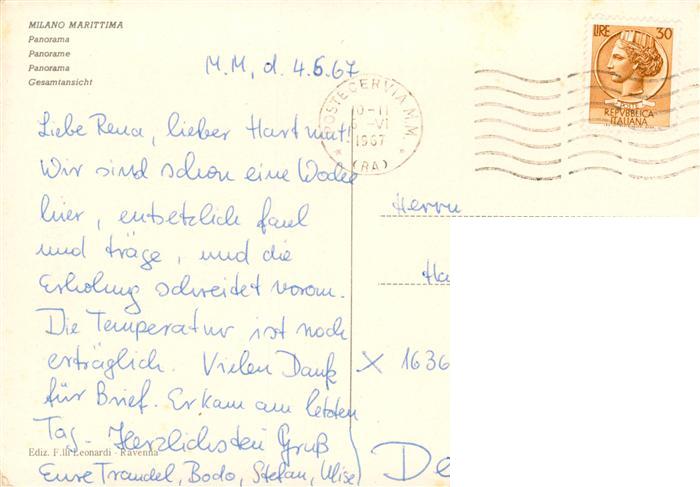 MILANO MARITTIMA
Panorama
Panorame
Panorama
Gesamtansicht
M.M, d. 4.6.67
LIRE 30
POSTE
REPVBBLICA
ITALIANA
POSTE CERVIA M.M.
10-11
VI
1967
(RA)
Liebe Rena, lieber Hartmut!
Wir sind schon eine Woche
hier, entsetzlich faul
und träge, und die
Erholung schreitet voran.
Die Temperatur ist noch
erträglich. Vielen Dank
für Brief. Er kam am letzten
Tag. Herzlichsten Gruß
Eure Traudel, Bodo, Stefan,
Herrn
Ha
X 1636
De
Ediz. F.lli Leonardi - Ravenna